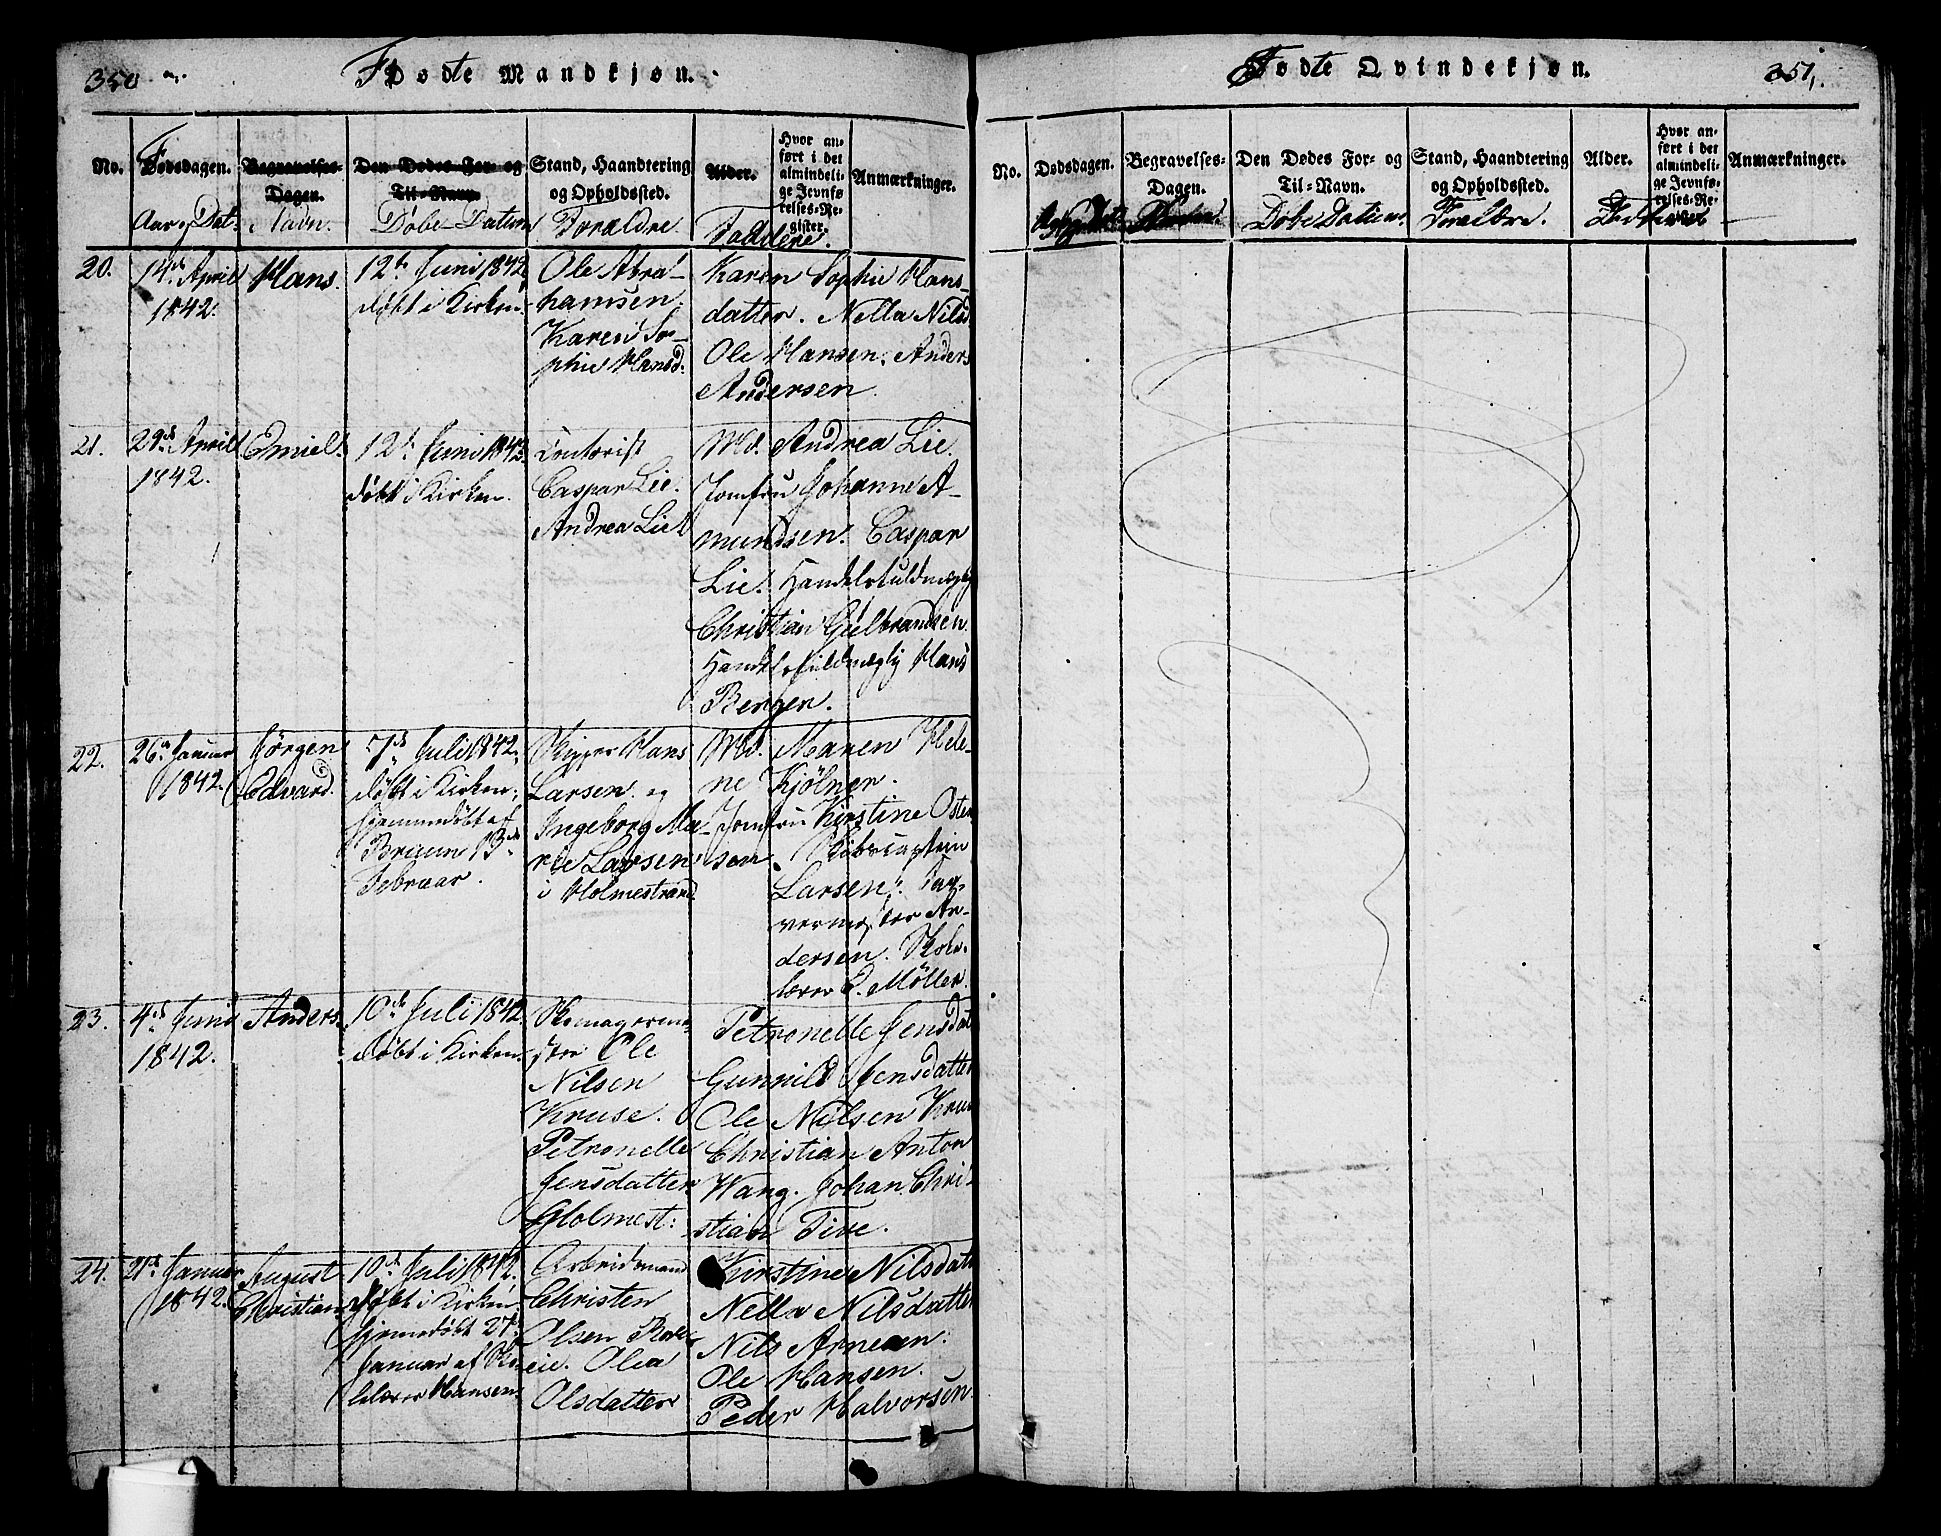 350
Fødte Mandkjøn.
No.
Fødsdagen.
Aar og Dat.
Begravelses-
Dagen.
Navn.
Den Dødes For- og
Til-Navn.
Døbe-Datum
Stand, Haandtering
og Opholdssted.
Forældre
Alder.
Faddere.
Hvor an-
ført i det
almindeli-
ge Jevnfø-
relses-Re-
gister.
Anmærkninger.
20.
14de April
1842.
Hans.
12te Juni 1842
døbt i Kirken.
Ole Abra-
hamsen.
Karen So-
phie Hansd.
Karen Sophie Hans-
datter. Nella Nilsd.
Ole Hansen. Anders
Andersen.
21.
29de April
1842.
Emiel.
12te Juni 1842.
døbt i Kirken.
Contorist
Caspar Lie.
Andrea Lie
Md. Andrea Lie.
Jomfru Johanne A-
mundsen. Caspar
Lie. Handelsfuldmægtig
Christian Gulbrandsen.
Handelsfuldmægtig Hans
Bergen.
22.
26de Januar
1842.
Jørgen
Edvard.
7de Juli 1842.
døbt i Kirken,
hjemmedøbt af
Braun 13de
Februar.
Skipper Hans
Larsen og
Ingeborg Ma-
rie Larsen
i Holmestrand
Md. Maren Hele-
ne Kjølner.
Jomfru Kirstine Osten
sen. Skibscaptein
Larsen. Far-
vermester An-
dersen. Skole-
lærer Møller.
23.
4de Juni
1842.
Anders.
10de Juli 1842.
døbt i Kirken.
Skomagerme-
ster Ole
Nilsen
Kruse.
Petronelle
Jensdatter
Holmest:
Petronelle Jensdat
Gunnild Jensdatter
Ole Nilsen Kruse
Christian Anton
Wang. Johan Chri-
stian Tire.
24.
21de Januar
1842.
August
Christian
10de Juli 1842.
døbt i Kirken.
hjemedøbt 27de
Januar af Sko-
lelærer Hansen.
Arbeidsmand
Christen
Olsen
eie. Olea
Olsdatter
Kirstine Nilsdatt
Nella Nilsdatter
Nils Arnesen.
Ole Hansen.
Peder Halvorsen.
Fødte Qvindekjøn.
351.
No.
Dødsdagen.
Begravelses-
Dagen.
Den Dødes For- og
Til-Navn.
Døbe Datum.
Stand, Haandtering
og Opholdssted.
Forældre.
Alder.
Hvor an-
ført i det
almindeli-
ge Jevnfø-
relses-Re-
gister.
Anmærkninger.